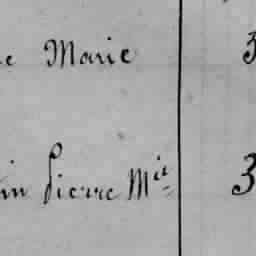 e Marie 3
in Pierre M^ie 3